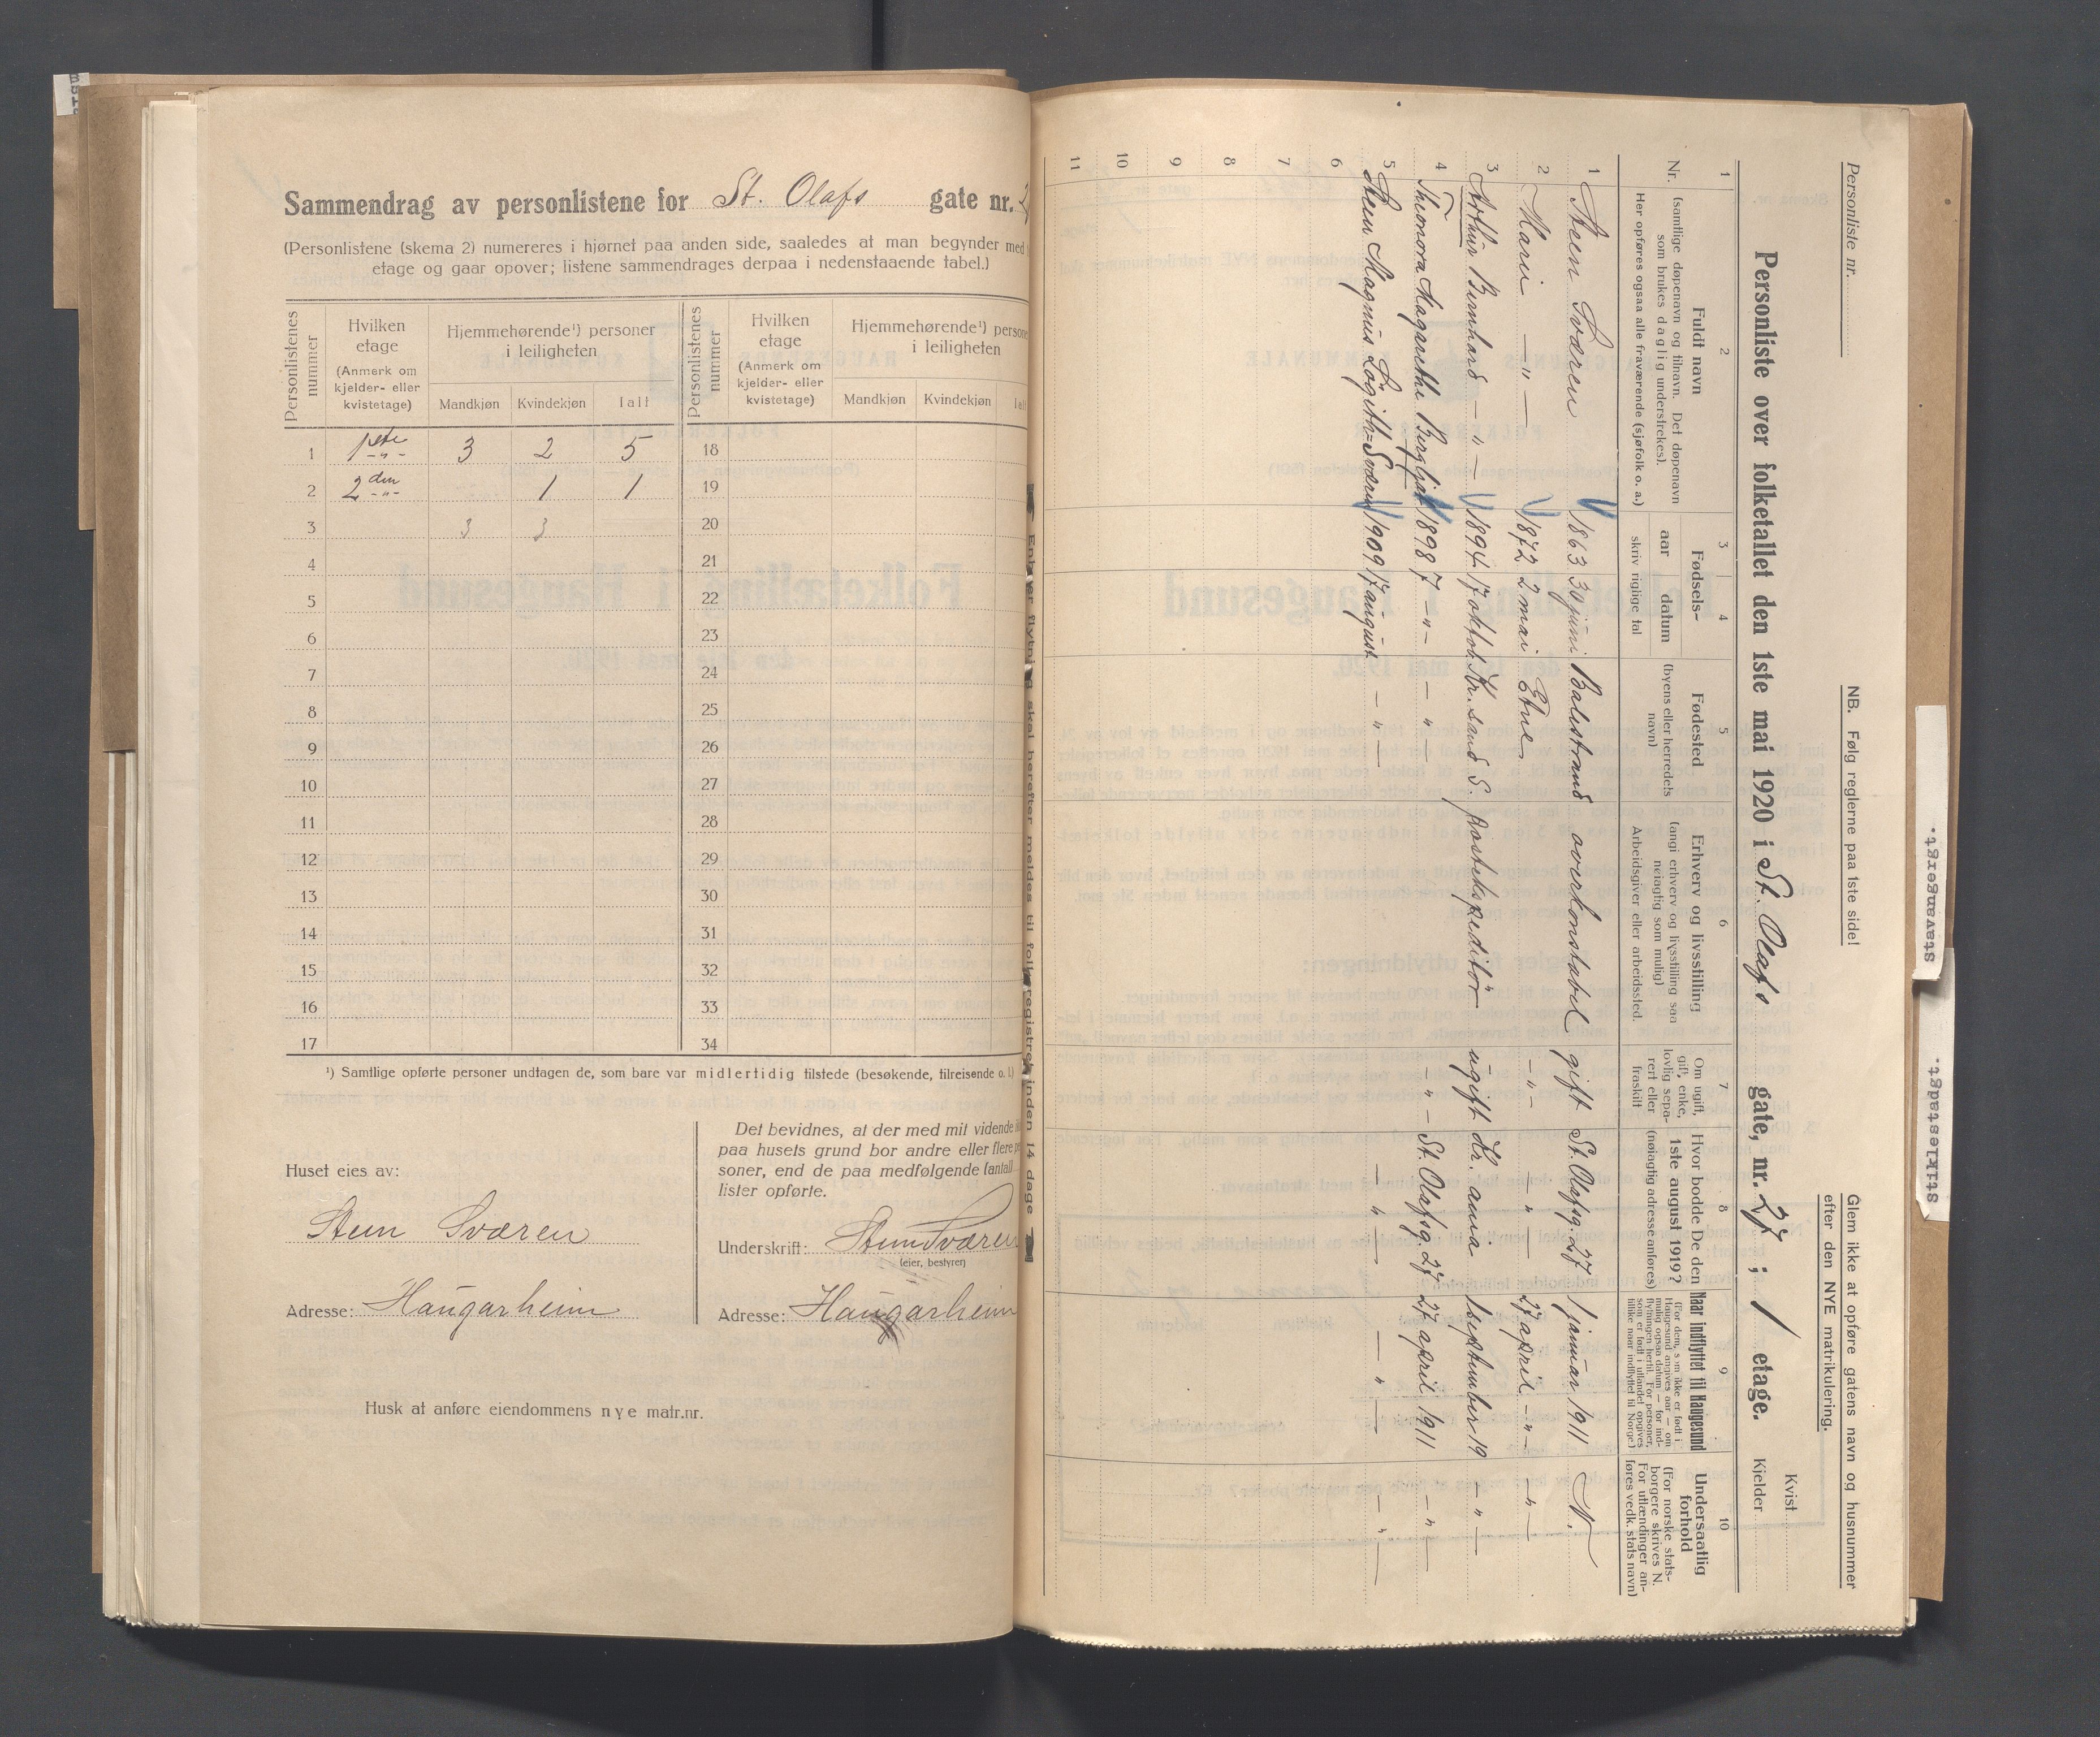 Sammendrag av personlistene for St. Olafs gate nr.
(Personlistene (skema 2) numereres i hjørnet paa anden side, saaledes at man begynder med
etage og gaar opover; listene sammendrages derpaa i nedenstaaende tabel.)
Personlistenes nummer
Hvilken etage
(Anmerk om kjelder- eller kvistetage)
Hjemmehørende¹) personer i leiligheten
Mandkjøn Kvindekjøn Ialt
Personlistenes nummer
Hvilken etage
(Anmerk om kjelder- eller kvistetage)
Hjemmehørende¹) persone
i leiligheten
Mandkjøn Kvindekjøn Ialt
1 1ste -"- 3 2 5 18
2 2den -"- 1 1 19
3 3 3 20
4 21
5 22
6 23
7 24
8 25
9 26
10 27
11 28
12 29
13 30
14 31
15 32
16 33
17 34
¹) Samtlige opførte personer undtagen de, som bare var midlertidig tilstede (besøkende, tilreisende o. l.)
Huset eies av:
Stein Sværen
Adresse: Haugarheim
Det bevidnes, at der med mit vidende
paa husets grund bor andre eller flere
soner, end de paa medfølgende (antall
lister opførte.
Underskrift: Stein Sværen
(eier, bestyrer)
Adresse: Haugarheim
Husk at anføre eiendommens nye matr.nr.
Enhver flytning skal herefter meldes til folkeregistret inden 14 dage
Personliste nr.
NB. Følg reglerne paa 1ste side!
Glem ikke at opføre gatens navn og husnummer
efter den NYE matrikulering.
Personliste over folketallet den 1ste mai 1920 i St. Olafs gate, nr. 27 ; 1 etage.
Kvist
Kjelder
1 2 3 4 5 6 7 8 9 10
Nr.
Fuldt navn
(samtlige døpenavn og tilnavn. Det døpenavn
som brukes daglig understrekes).
Her opføres ogsaa alle fraværende (sjøfolk o. a.)
Fødsels-
aar datum
skriv rigtige tal
Fødested
(byens eller herredets
navn)
Erhverv og livsstilling
(angi erhverv og livsstilling saa
nøiagtig som mulig)
Arbeidsgiver eller arbeidssted.
Om ugift,
gift, enke,
lovlig sepa-
rert eller
fraskilt
Hvor bodde De den
1ste august 1919?
(nøiagtig adresse anføres)
Naar indflyttet til Haugesund
(For dem, som ikke er født i
Haugesund angives aar — om
mulig ogsaa datum — for ind-
flytningen hertil. For personer,
som er født i utlandet opgives
tillike naar indflyttet til Norge.)
Undersaatlig
forhold
(For norske stats-
borgere skrives N.
For utlændinger an-
føres vedk. stats navn)
1 Stein Sværen 1863 30 juni Balestrand overkonstabel gift St. Olafsg. 27 1 januar 1911 N.
2 Marie —"— 1872 2 mai Etne —"— —"— 27 april —"— —"—
3 Arthur Bernhard —"— 1894 17 oktob. Kr.sand S. postekspeditör ugift Kr.ania 1 september 19 —"—
4 Theonora Magarethe Bergljot 1898 7 —"— —"— —"— St. Olafsg. 27 27 april 1911 —"—
5 Stein Magnus Løgith Sværen 1909 17 august —"— —"— —"— —"—
6
7
8
9
10
11
Stavangergt.
Stiklestadgt.